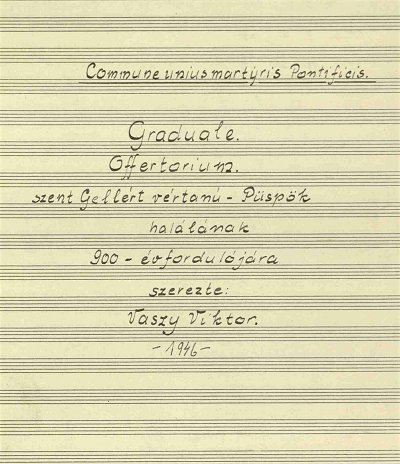 Commune unius martÿris Pontificis.
Graduale.
Offertorium.
szent Gellért vértanú - Püspök
halálának
900 - évfordulójára
szerezte:
Vaszy Viktor.
- 1946 -